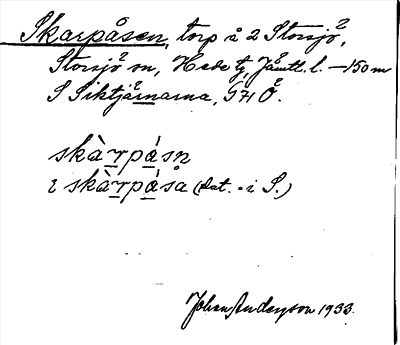 Skarpåsen, torp å 2 Storsjö,
Storsjö sn, Hede tg, Jämtl. l. — 150 m
S Siktjärnarna, GHÖ.
skàrpásn
i skàrpáså (dat. - i S.)
Johan Anderson 1933.